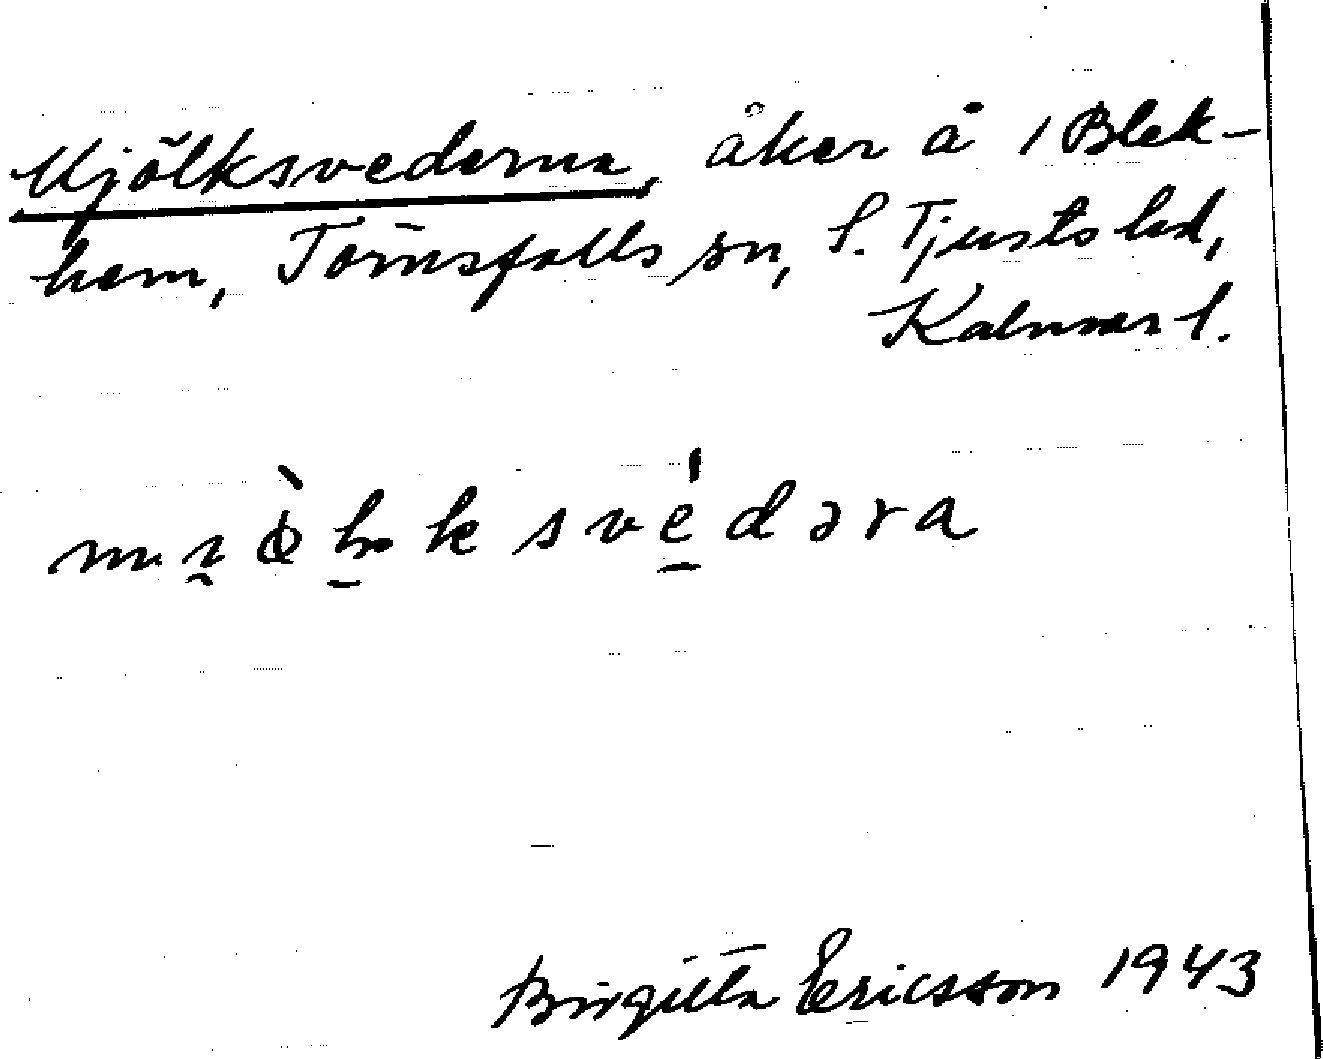 Mjölksvederna, åker å 1 Blek-
hem, Törnsfalls sn, S. Tjusts hd,
Kalmar l.
Birgitta Ericsson 1943